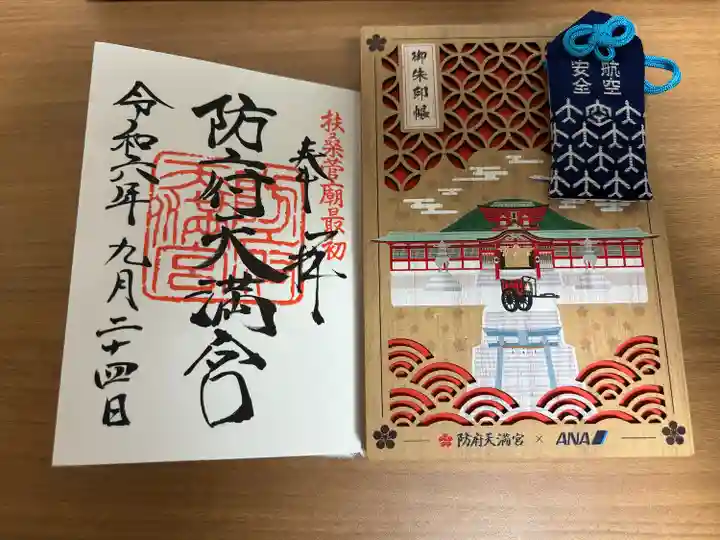 扶桑菅廟最初
奉拝
防府天満宮
令和六年九月二十四日
御朱印帳
航空
安全
防府天満宮 × ANA